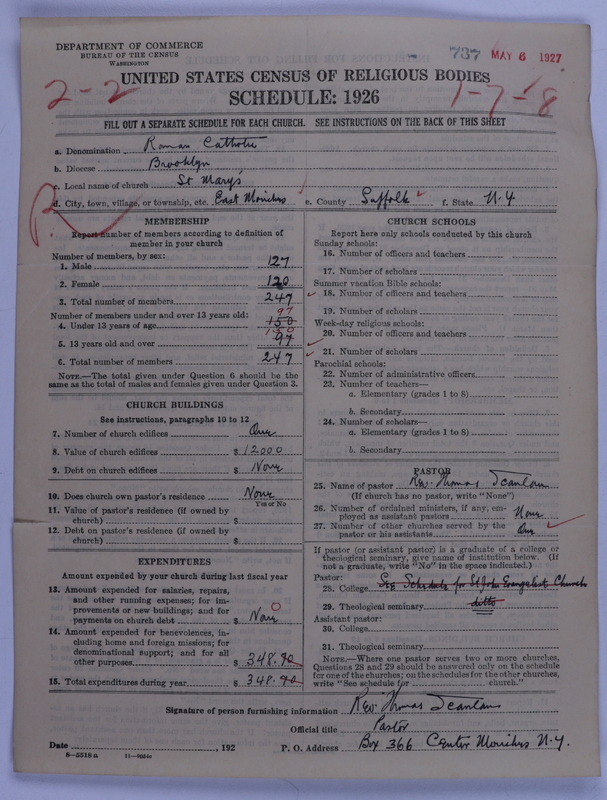 DEPARTMENT OF COMMERCE
BUREAU OF THE CENSUS
WASHINGTON
737 MAY 6 1927
UNITED STATES CENSUS OF RELIGIOUS BODIES
SCHEDULE: 1926
2-2
1-7-8
FILL OUT A SEPARATE SCHEDULE FOR EACH CHURCH. SEE INSTRUCTIONS ON THE BACK OF THIS SHEET
a. Denomination Roman Catholic
b. Diocese Brooklyn
c. Local name of church St Mary's
d. City, town, village, or township, etc. East Moriches e. County Suffolk f. State N.Y.
R
MEMBERSHIP
Report number of members according to definition of member in your church
Number of members, by sex:
1. Male 127
2. Female 120
3. Total number of members 247
Number of members under and over 13 years old:
97
4. Under 13 years of age 150
150
5. 13 years old and over 97
6. Total number of members 247
NOTE.—The total given under Question 6 should be the same as the total of males and females given under Question 3.
CHURCH BUILDINGS
See instructions, paragraphs 10 to 12
7. Number of church edifices One
8. Value of church edifices $ 12000
9. Debt on church edifices $ None
10. Does church own pastor's residence None
Yes or No
11. Value of pastor's residence (if owned by church) $
12. Debt on pastor's residence (if owned by church) $
EXPENDITURES
Amount expended by your church during last fiscal year
13. Amount expended for salaries, repairs, and other running expenses; for improvements or new buildings; and for payments on church debt $ None
O
14. Amount expended for benevolences, including home and foreign missions; for denominational support; and for all other purposes $ 348.90
15. Total expenditures during year $ 348.90
CHURCH SCHOOLS
Report here only schools conducted by this church
Sunday schools:
16. Number of officers and teachers
17. Number of scholars
Summer vacation Bible schools:
18. Number of officers and teachers
19. Number of scholars
Week-day religious schools:
20. Number of officers and teachers
21. Number of scholars
Parochial schools:
22. Number of administrative officers
23. Number of teachers—
a. Elementary (grades 1 to 8)
b. Secondary
24. Number of scholars—
a. Elementary (grades 1 to 8)
b. Secondary
PASTOR
25. Name of pastor Rev. Thomas Scanlan
(If church has no pastor, write "None")
26. Number of ordained ministers, if any, employed as assistant pastors None
27. Number of other churches served by the pastor or his assistants One
If pastor (or assistant pastor) is a graduate of a college or theological seminary, give name of institution below. (If not a graduate, write "No" in the space indicated.)
Pastor:
28. College See Schedule for St John Evangelist Church
29. Theological seminary ditto
Assistant pastor:
30. College
31. Theological seminary
NOTE.—Where one pastor serves two or more churches, Questions 28 and 29 should be answered only on the schedule for one of the churches; on the schedules for the other churches, write "See schedule for church."
Signature of person furnishing information Rev. Thomas Scanlan
Official title Pastor
Date , 192 P. O. Address Box 366 Center Moriches N.Y.
8-5518 a